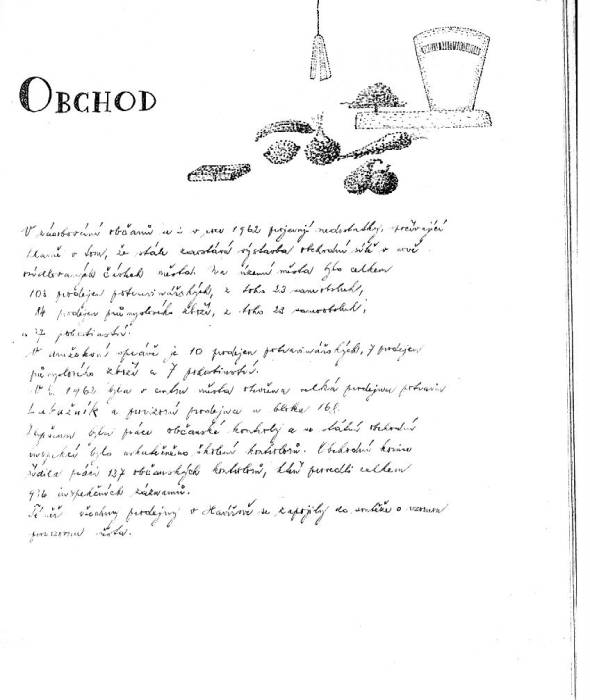 OBCHOD
V zásobování občanů se i v roce 1962 projevují nedostatky, spočívající
hlavně v tom, že stále zaostává výstavba obchodní sítě v nově
osídlovaných částech města. Na území města bylo celkem
103 prodejen potravinářských, z toho 23 samoobsluh,
prodejen průmyslového zboží, z toho 23 samoobsluh,
a 37 pohostinství.
V družstevní správě je 10 prodejen potravinářských, 7 prodejen
průmyslového zboží a 7 pohostinství.
V r. 1962 byla v centru města otevřena velká prodejna potravin
Labužník a provizorní prodejna v bloku
Zlepšena byla práce občanské kontroly a ve státní obchodní
inspekci bylo uskutečněno školení kontrolorů. Obchodní komise
řídila práci 137 občanských kontrolorů, kteří provedli celkem
936 inspekčních záznamů.
Téměř všechny prodejny v Havířově se zapojily do soutěže o vzornou
prodejnu města.